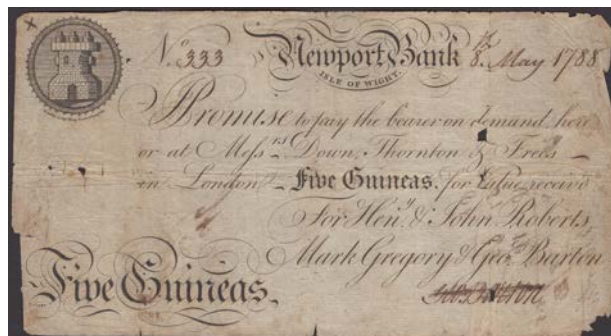 No 333 Newport Bank 8th May 1788
ISLE OF WIGHT.
I Promise to pay the bearer on demand here
or at Messrs Down, Thornton & Free's
in London, Five Guineas, for value receiv'd
For Heny & John Roberts
Mark Gregory & Geo. Barton
Five Guineas.